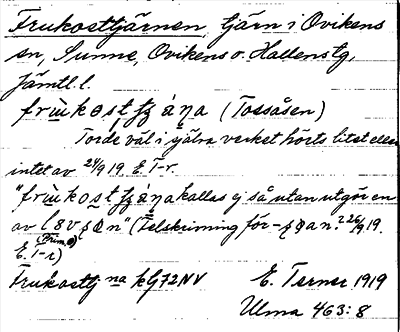 Frukosttjärnen, tjärn i Ovikens
sn, Sunne, Ovikens o. Hallens tg,
Jämtl. l.
frùkostʒána (Tossåsen)
Torde väl i själva verket hörts litet eller
intet av 24/9 19. E. T-r.
"frùkostʒána kallas ej så utan utgör en
av lsv n" (Felskrivning för -an? 26/9 19.
E. T-r)
Frukosttj na kG72NV E. Terner 1919
Ulma 463:8